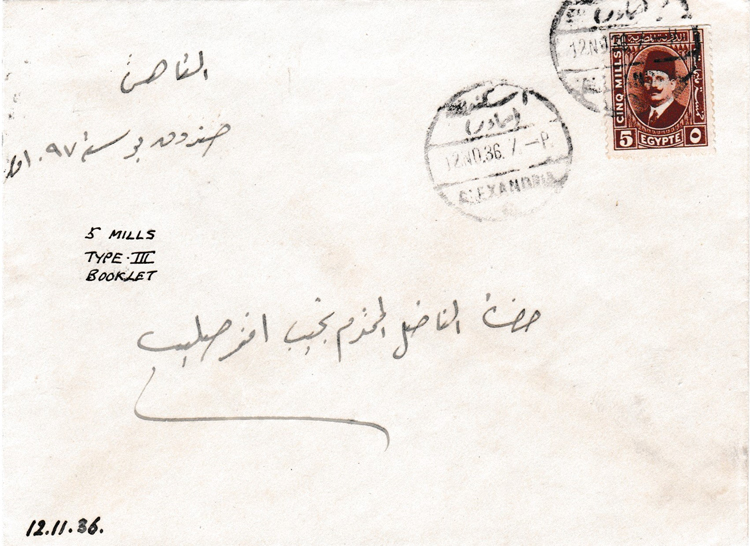 القاهرة
صندوق بوسته ٩٧٠
5 MILLS
TYPE·III
BOOKLET
حضرة الفاضل المحترم نجيب افندي صليب
12.11.36.
اسكندرية
(صادر)
12.NO.36. 7.—P.
ALEXANDRIA
(صادر)
12.NO
CINQ MILLS
5 EGYPTE ٥